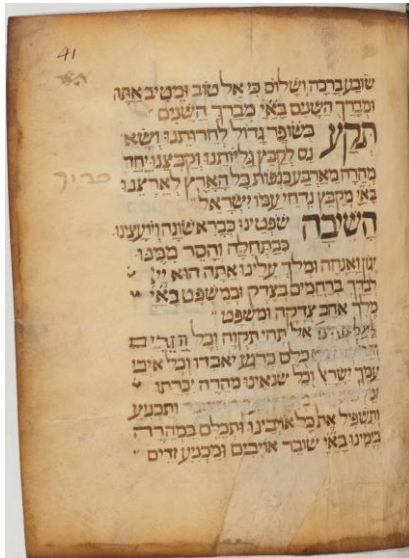 41
שובע ברכה ושלום כי אל טוב ומטיב אתה
ומברך השנים באי מברך השנים
תקע בשופר גדול לחרותנו ושא
נס לקבץ גליותנו וקבצנו יחד
מהרה מארבע כנפות כל הארץ לארצנו
באי מקבץ נדחי עמו ישראל
השיבה שפטינו כבראשונה ויועצינו
כבתחלה והסר ממנו
יגון ואנחה ומלך עלינו אתה הוא יי
לבדך ברחמים בצדק ובמשפט באי
מלך אהב צדקה ומשפט
אל תהי תקוה וכל
כלם כרגע יאבדו וכל איבי
עמך ישר׳ וכל שנאינו מהרה יכרתו
ותכניע
ותשפיל את כל אויבינו ותכלם במהרה
בימינו באי שובר אויבים ומכניע זדים